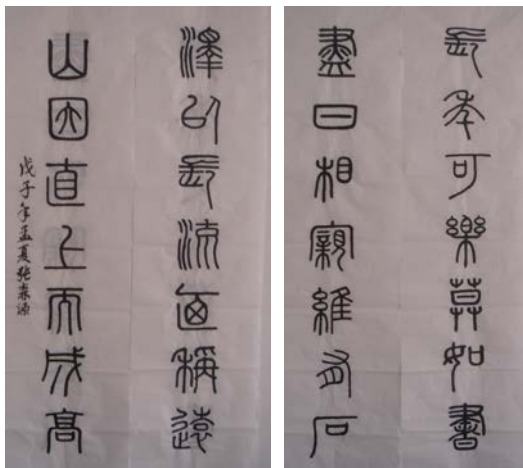 長年可樂莫如書
盡日相親維有石
澤以長流迺稱遠
山因直上而成高
戊子年孟夏張森源